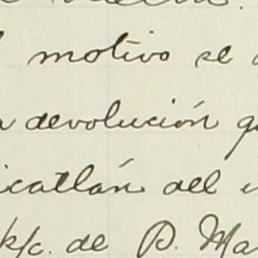 motivo se
devolución
icatlán del
k/c. de D. Ma